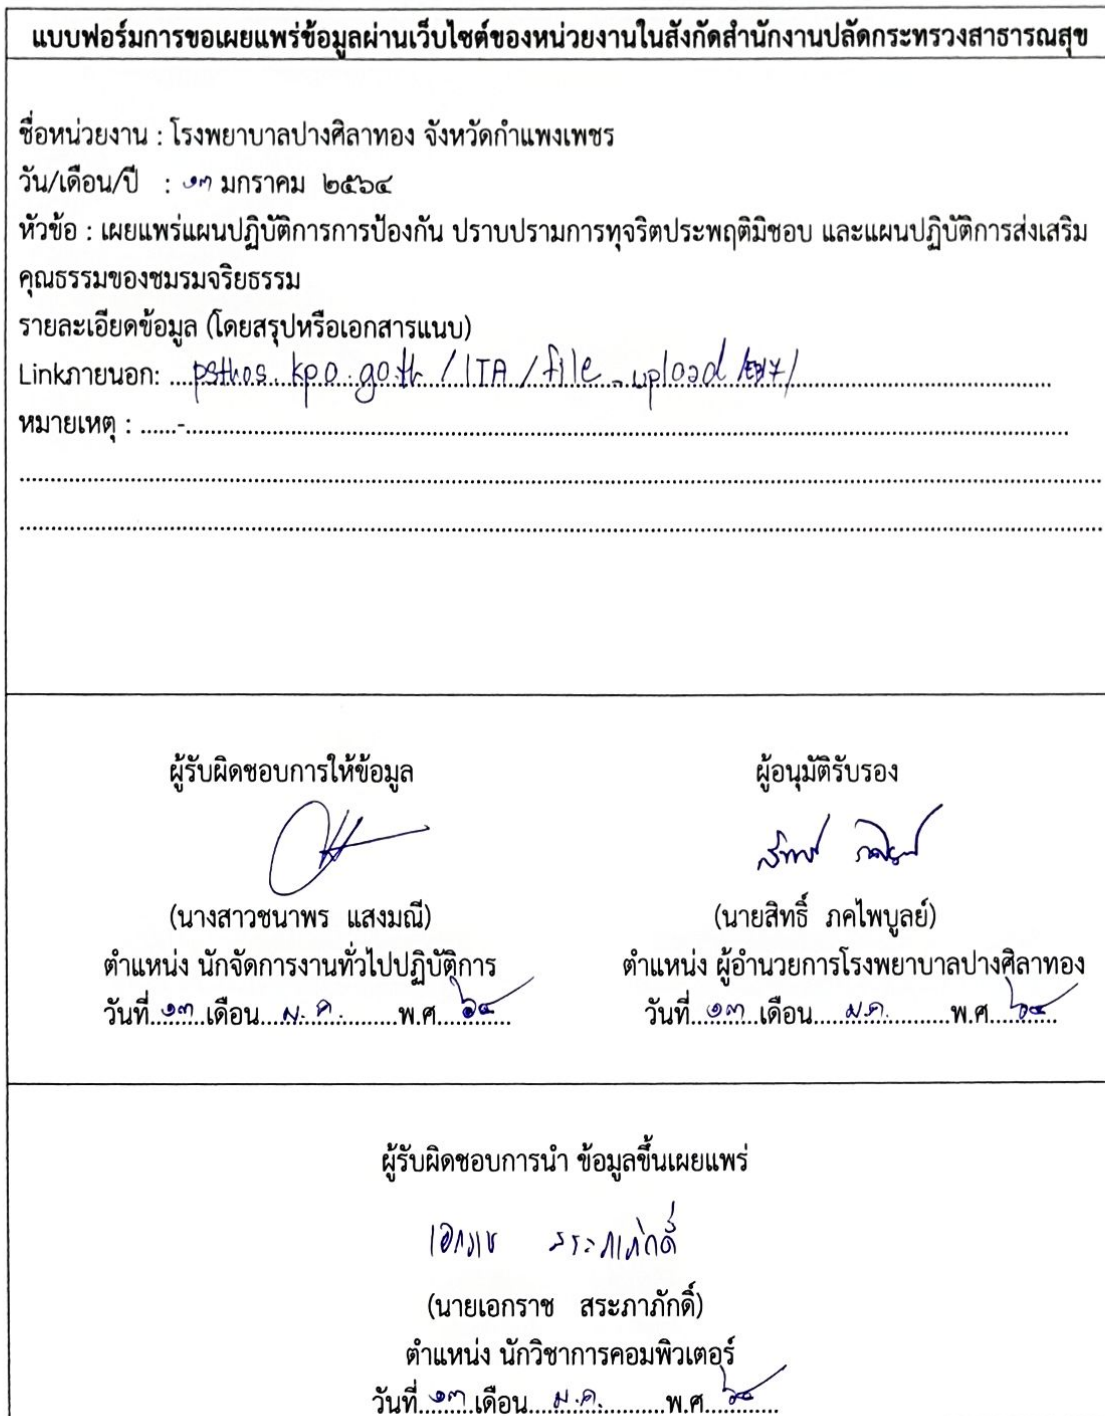 แบบฟอร์มการขอเผยแพร่ข้อมูลผ่านเว็บไซต์ของหน่วยงานในสังกัดสำนักงานปลัดกระทรวงสาธารณสุข
ชื่อหน่วยงาน : โรงพยาบาลปางศิลาทอง จังหวัดกำแพงเพชร
วัน/เดือน/ปี : ๑๓ มกราคม ๒๕๖๔
หัวข้อ : เผยแพร่แผนปฏิบัติการการป้องกัน ปราบปรามการทุจริตประพฤติมิชอบ และแผนปฏิบัติการส่งเสริม
คุณธรรมของชมรมจริยธรรม
รายละเอียดข้อมูล (โดยสรุปหรือเอกสารแนบ)
Linkภายนอก: ...psthos.kpo.go.th/ITA/file_upload/
หมายเหตุ : ......-......
ผู้รับผิดชอบการให้ข้อมูล ผู้อนุมัติรับรอง
สิทธิ์ ภคไพบูลย์
(นางสาวชนาพร แสงมณี) (นายสิทธิ์ ภคไพบูลย์)
ตำแหน่ง นักจัดการงานทั่วไปปฏิบัติการ ตำแหน่ง ผู้อำนวยการโรงพยาบาลปางศิลาทอง
วันที่..๑๓..เดือน....ม.ค.........พ.ศ...๖๔...... วันที่..๑๓..เดือน.....ม.ค..........พ.ศ....๖๔.....
ผู้รับผิดชอบการนำ ข้อมูลขึ้นเผยแพร่
เอกราช สระภาภักดิ์
(นายเอกราช สระภาภักดิ์)
ตำแหน่ง นักวิชาการคอมพิวเตอร์
วันที่..๑๓..เดือน....ม.ค.........พ.ศ...๖๔......